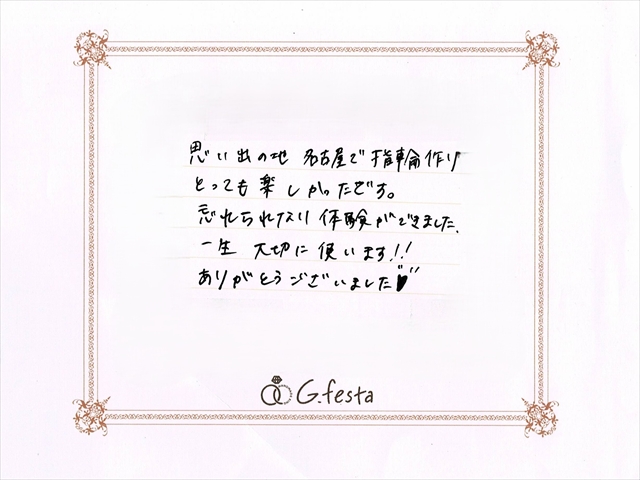 思い出の地 名古屋で指輪作り
とっても楽しかったです。
忘れられない体験ができました。
一生 大切に使います!!
ありがとうございました
G.festa